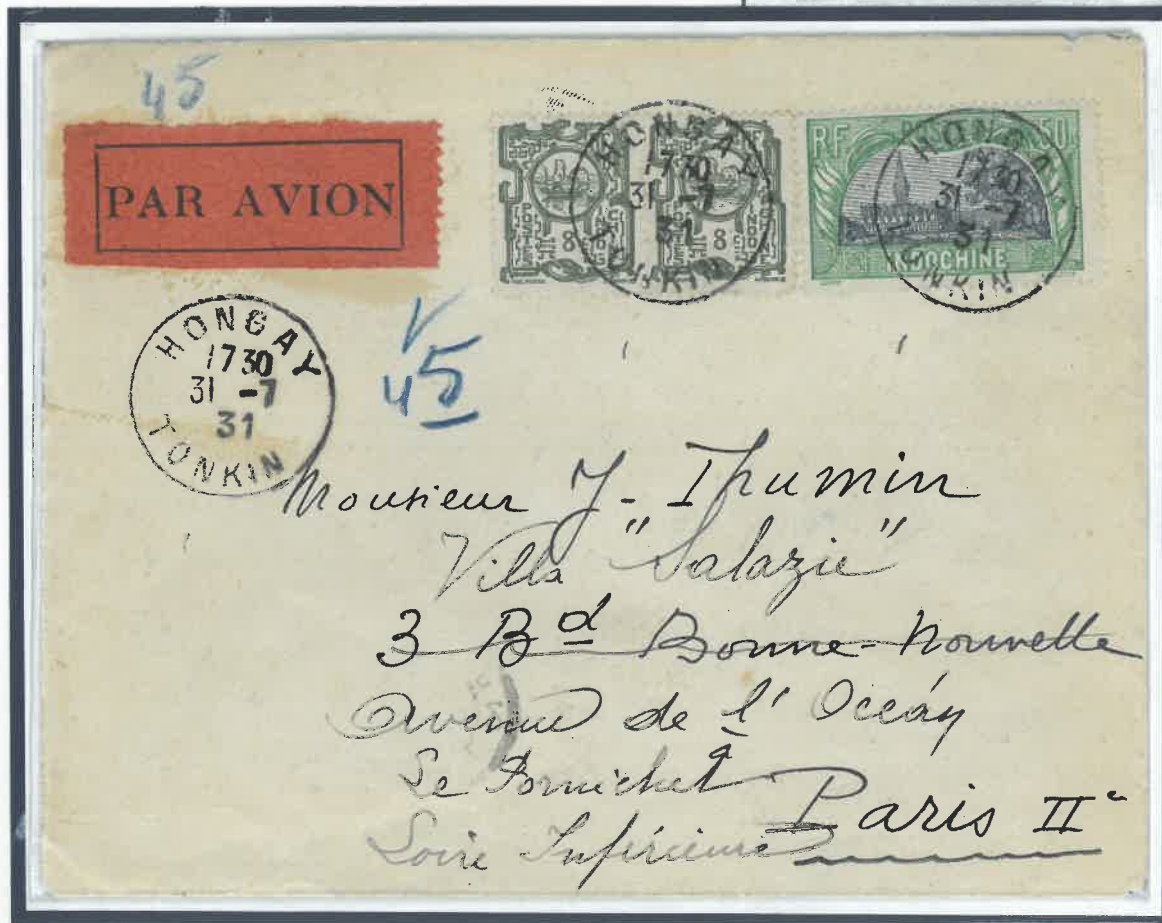 45
PAR AVION
HONGAY
17 30
31 -7
31
TONKIN
8
8
RF
50
INDOCHINE
HONGAY
17 30
31 -7
31
TONKIN
HONGAY
17 30
31 -7
31
TONKIN
45
Monsieur J - Thumin
Villa "Salazie"
3 Bd Bonne-Nouvelle
Avenue de l'Océan
Le Pornichet
Paris IIe
Loire Inférieure